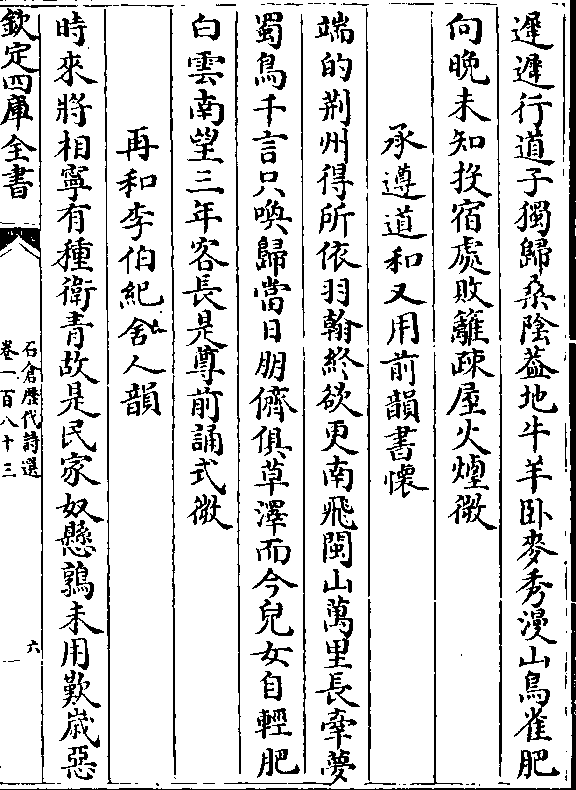 遲遲行道子獨歸桑陰葢地牛羊卧麥秀漫山鳥雀肥
向晚未知投宿處敗籬疎屋火煙微
承遵道和又用前韻書懷
端的荆州得所依羽翰終欲更南飛閩山萬里長牽夢
蜀鳥千言只喚歸當日朋儕俱草澤而今兒女自輕肥
白雲南望三年客長是尊前誦式微
再和李伯紀舍人韻
時來將相寧有種衛青故是民家奴懸鶉未用歎歳惡
欽定四庫全書
石倉歷代詩選
卷一百八十三
六